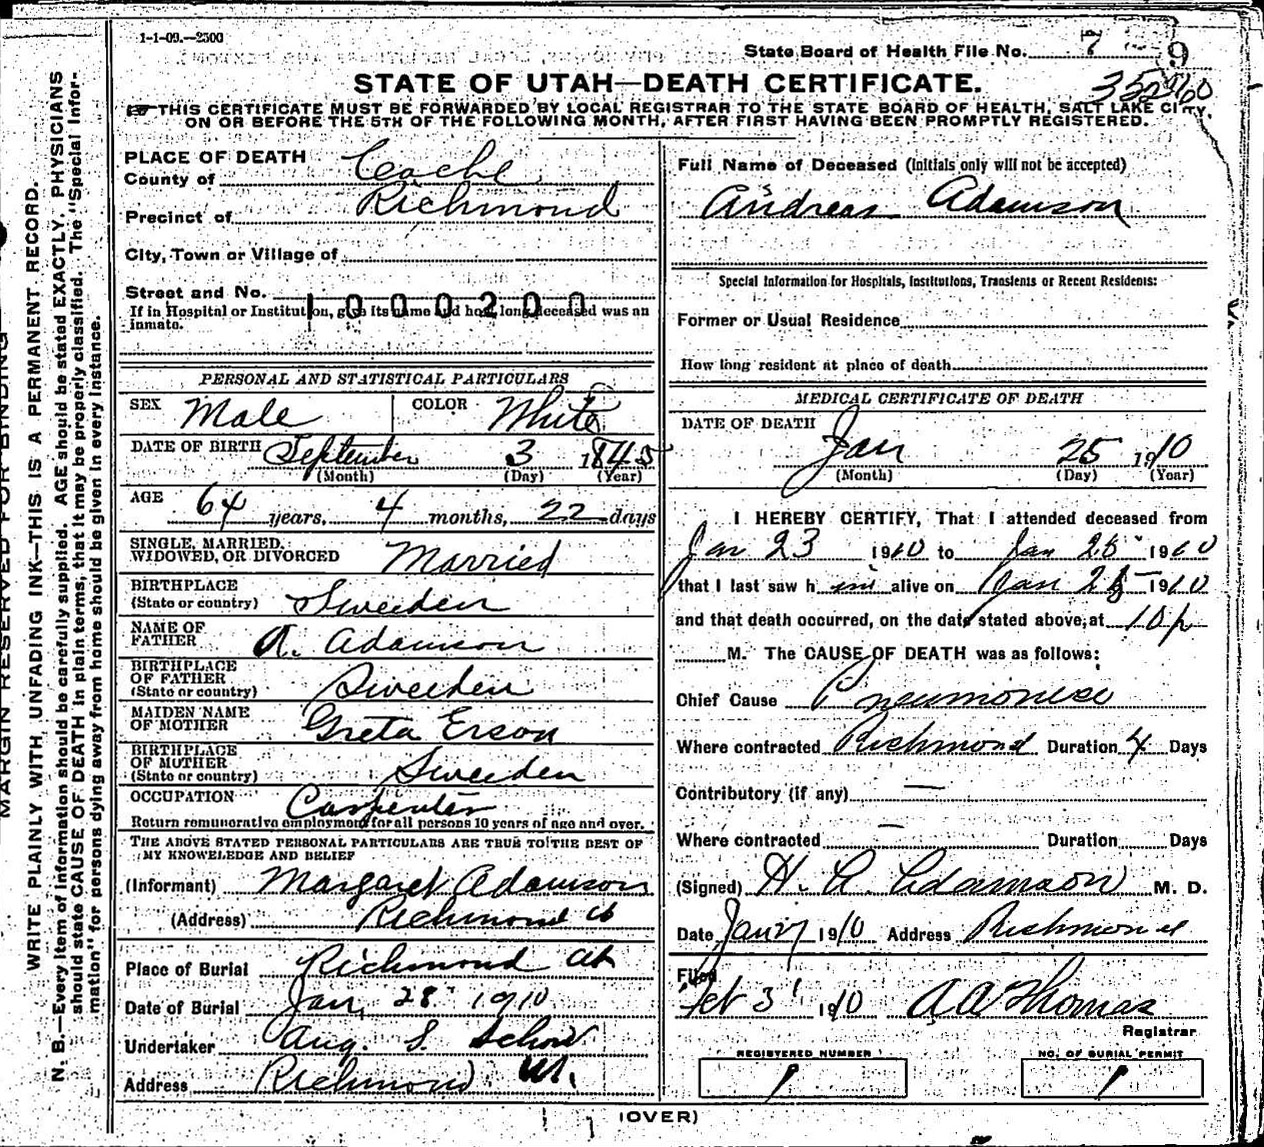 1-1-09.—2500
State Board of Health File No. 7 9
STATE OF UTAH—DEATH CERTIFICATE.
THIS CERTIFICATE MUST BE FORWARDED BY LOCAL REGISTRAR TO THE STATE BOARD OF HEALTH, SALT LAKE CITY,
ON OR BEFORE THE 5TH OF THE FOLLOWING MONTH, AFTER FIRST HAVING BEEN PROMPTLY REGISTERED.
PLACE OF DEATH
County of Cache
Precinct of Richmond
City, Town or Village of
Street and No.
1000200
If in Hospital or Institution, give its name and how long deceased was an
inmate.
PERSONAL AND STATISTICAL PARTICULARS
SEX Male COLOR White
DATE OF BIRTH September 3 1845
(Month) (Day) (Year)
AGE 64 years, 4 months, 22 days
SINGLE, MARRIED,
WIDOWED, OR DIVORCED Married
BIRTHPLACE
(State or country) Sweeden
NAME OF
FATHER A. Adamson
BIRTHPLACE
OF FATHER
(State or country) Sweeden
MAIDEN NAME
OF MOTHER Greta Erson
BIRTHPLACE
OF MOTHER
(State or country) Sweeden
OCCUPATION Carpenter
Return remunerative employment for all persons 10 years of age and over.
THE ABOVE STATED PERSONAL PARTICULARS ARE TRUE TO THE BEST OF
MY KNOWLEDGE AND BELIEF
(Informant) Margaret Adamson
(Address) Richmond Ut
Place of Burial Richmond Ut
Date of Burial Jan. 28 1910
Undertaker Aug. S. Schow
Address Richmond Ut.
Full Name of Deceased (Initials only will not be accepted)
Andreas Adamson
Special Information for Hospitals, Institutions, Transients or Recent Residents:
Former or Usual Residence
How long resident at place of death
MEDICAL CERTIFICATE OF DEATH
DATE OF DEATH
Jan 25 1910
(Month) (Day) (Year)
I HEREBY CERTIFY, That I attended deceased from
Jan 23 1910 to Jan 25 1910
that I last saw him alive on Jan 25 1910
and that death occurred, on the date stated above, at 10 p
M. The CAUSE OF DEATH was as follows:
Chief Cause Pneumonia
Where contracted Richmond Duration 4 Days
Contributory (if any) —
Where contracted — Duration Days
(Signed) Adamson M. D.
Date Jan 27 1910 Address Richmond
Filed
Feb 3 1910 A A Thomas
Registrar
REGISTERED NUMBER
1
NO. OF BURIAL PERMIT
1
(OVER)
MARGIN RESERVED FOR BINDING
WRITE PLAINLY WITH UNFADING INK—THIS IS A PERMANENT RECORD.
N. B.—Every item of information should be carefully supplied. AGE should be stated EXACTLY. PHYSICIANS
should state CAUSE OF DEATH in plain terms, that it may be properly classified. The "Special Infor-
mation" for persons dying away from home should be given in every instance.